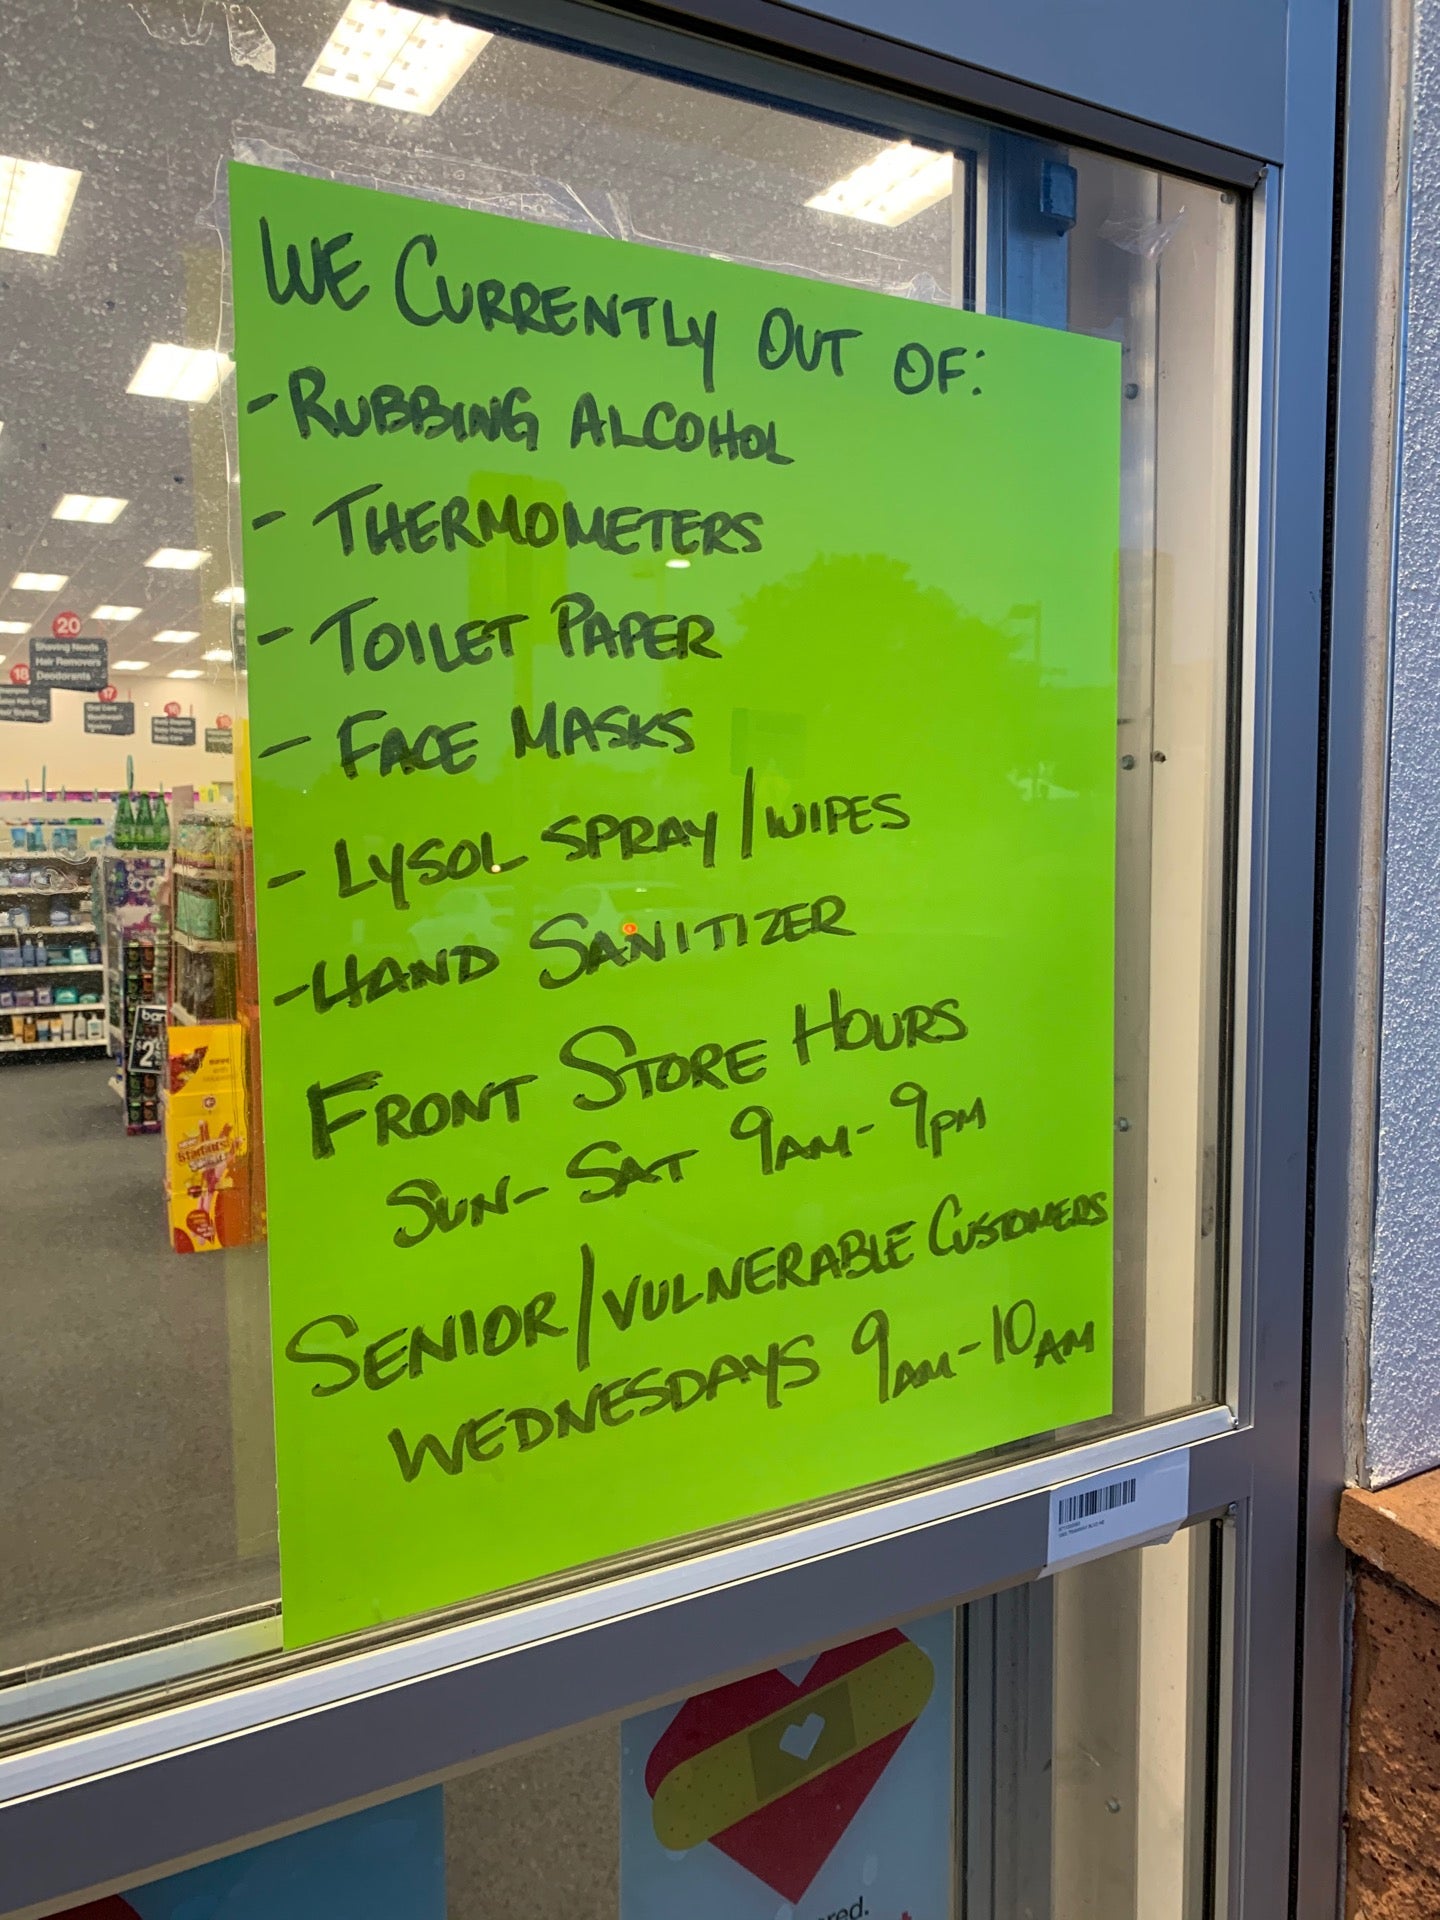 WE CURRENTLY OUT OF:
- RUBBING ALCOHOL
- THERMOMETERS
- TOILET PAPER
- FACE MASKS
- LYSOL SPRAY/WIPES
- HAND SANITIZER
FRONT STORE HOURS
SUN-SAT 9AM-9PM
SENIOR/VULNERABLE CUSTOMERS
WEDNESDAYS 9AM-10AM
20
Shaving Needs
Hair Removers
Deodorants
18
17